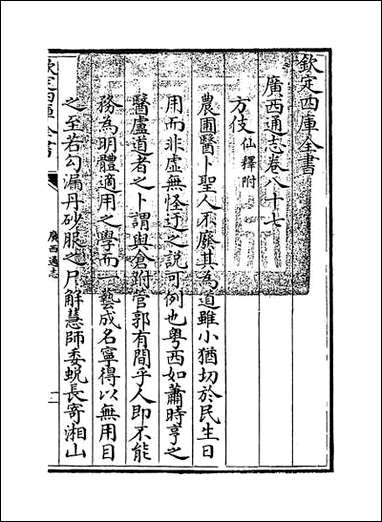 欽定四庫全書
廣西通志卷八十七
方伎仙釋附
農圃醫卜聖人不廢其為道雖小猶切於民生日
用而非虛無怪迂之說可例也粵西如蕭時亨之
醫盧道者之卜謂與倉跗管郭有間乎人即不能
務為明體適用之學而一藝成名寧得以無用目
之至若勾漏丹砂服之尸解慧師委蛻長寄湘山
欽定四庫全書
廣西通志
一